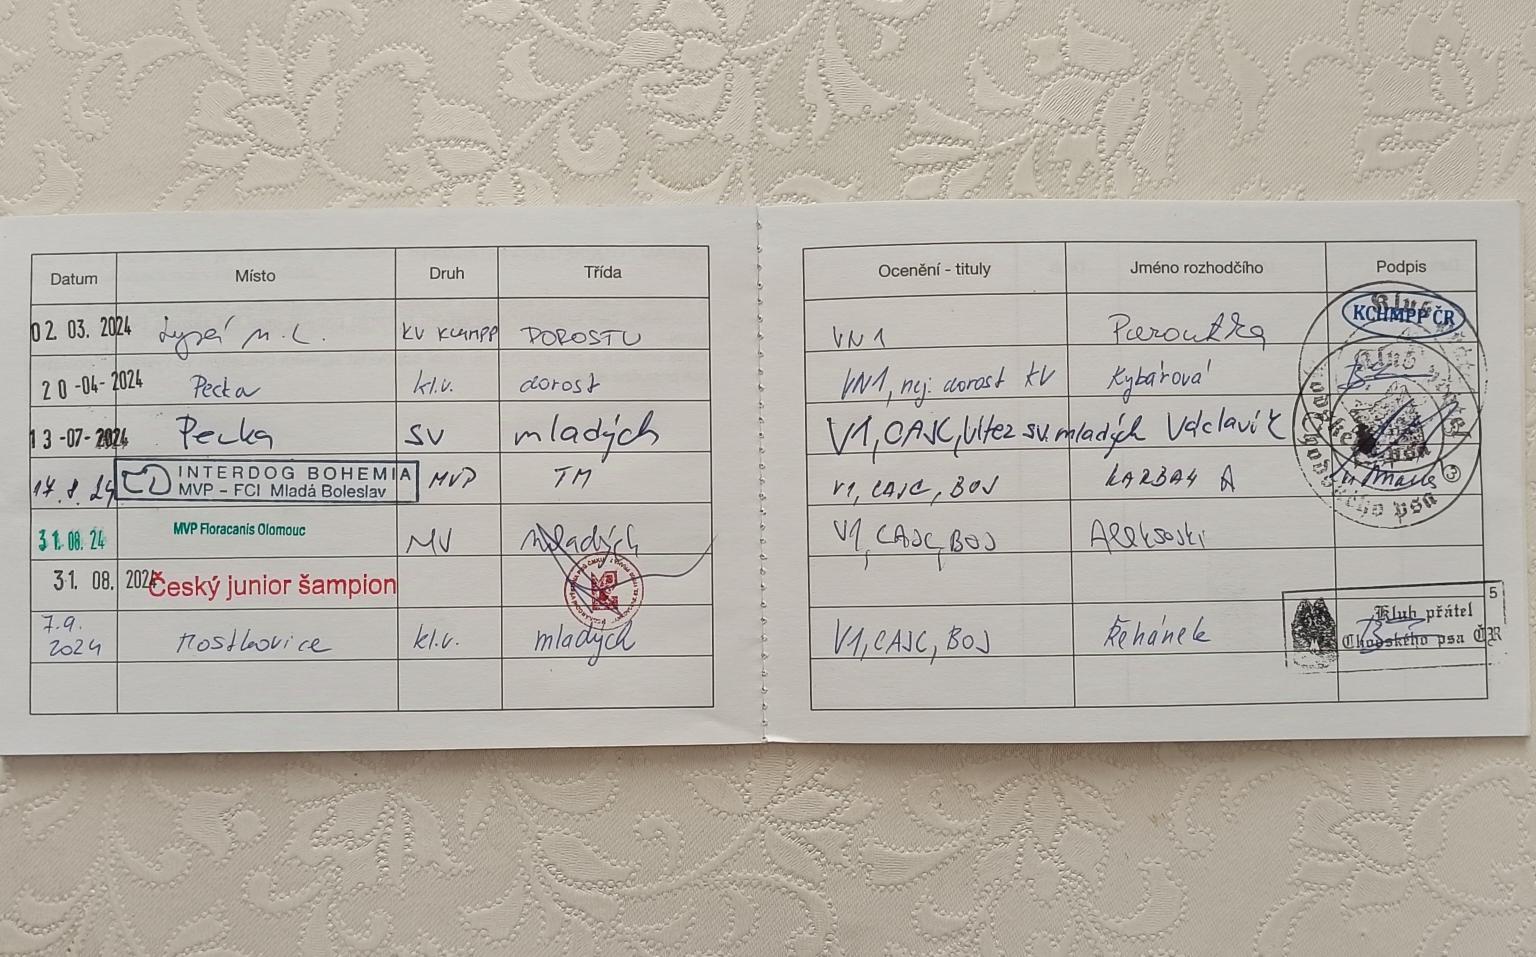 Datum Místo Druh Třída Ocenění - tituly Jméno rozhodčího Podpis
02. 03. 2024 Lysá n. L. KV KCHMPP DOROSTU VN1 Paroutka KCHMPP ČR
20 -04- 2024 Pecka kl.v. dorost VN1, nej. dorost KV Kybárová
13 -07- 2024 Pecka SV mladých V1, CAJC, Vítěz sv. mladých Václavík
17.8.24 INTERDOG BOHEMIA
MVP – FCI Mladá Boleslav MVP TM V1, CAJC, BOJ A
31. 08. 24 MVP Floracanis Olomouc MV mladých V1, CAJC, BOJ
31. 08. 2024 Český junior šampion
7.9.
2024 Mostkovice kl.v. mladých V1, CAJC, BOJ Řehánek
Klub přátel
Chodského psa ČR
5
Klub přátel
Chodského psa
3